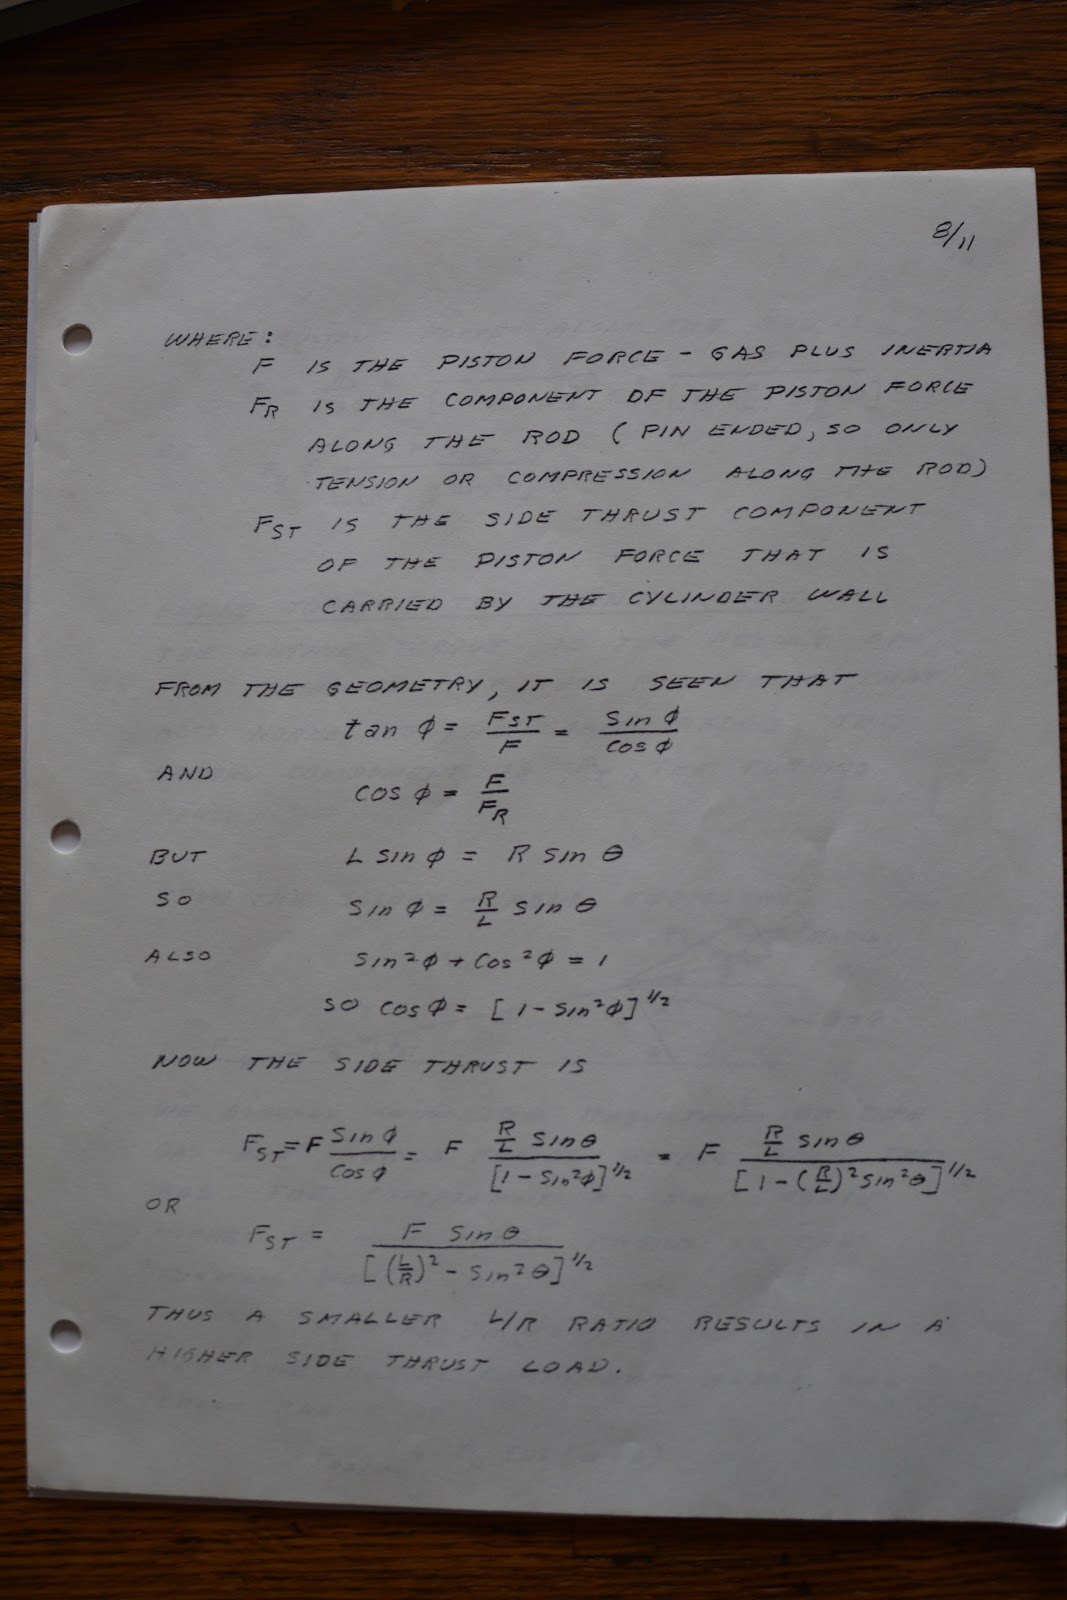 8/11
WHERE:
F IS THE PISTON FORCE - GAS PLUS INERTIA
F_R IS THE COMPONENT OF THE PISTON FORCE
ALONG THE ROD (PIN ENDED, SO ONLY
TENSION OR COMPRESSION ALONG THE ROD)
F_ST IS THE SIDE THRUST COMPONENT
OF THE PISTON FORCE THAT IS
CARRIED BY THE CYLINDER WALL
FROM THE GEOMETRY, IT IS SEEN THAT
tan φ = F_ST/F = sin φ/cos φ
AND cos φ = F/F_R
BUT L sin φ = R sin θ
SO sin φ = R/L sin θ
ALSO sin²φ + cos²φ = 1
SO cos φ = [1 - sin²φ]^1/2
NOW THE SIDE THRUST IS
F_ST = F sin φ/cos φ = F (R/L sin θ)/[1 - sin²φ]^1/2 = F (R/L sin θ)/[1 - (R/L)² sin²θ]^1/2
OR
F_ST = F sin θ/[(L/R)² - sin²θ]^1/2
THUS A SMALLER L/R RATIO RESULTS IN A
HIGHER SIDE THRUST LOAD.